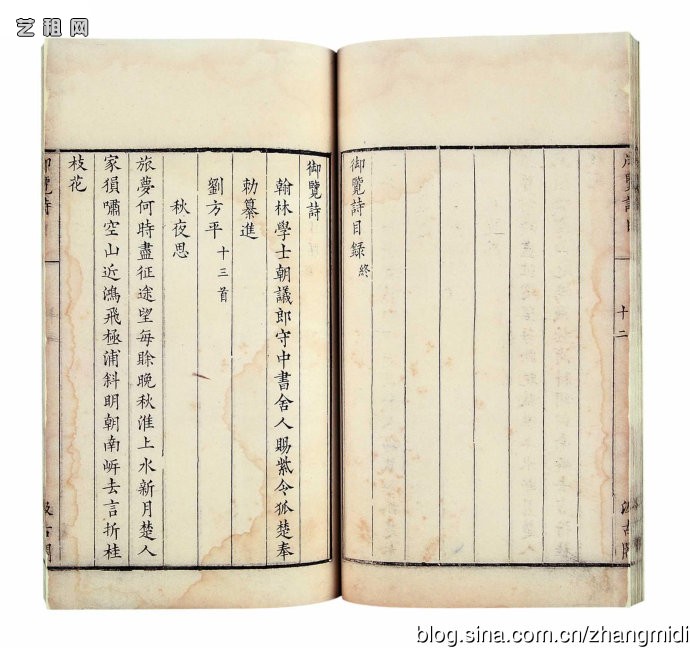 艺租网
御覽詩目
十二
汲古閣
御覽詩目録終
御覽詩
翰林學士朝議郎守中書舍人賜紫令狐楚奉
勅纂進
劉方平 十三首
秋夜思
旅夢何時盡征途望每賒晚秋淮上水新月楚人
家猨嘯空山近鴻飛極浦斜明朝南㟁去言折桂
枝花
御覽詩
汲古閣
blog.sina.com.cn/zhangmidi